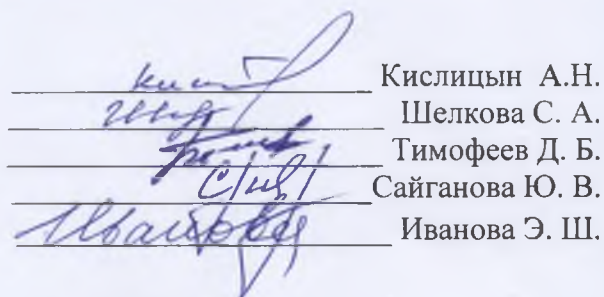 Кислицын А.Н.
Шелкова С. А.
Тимофеев Д. Б.
Сайганова Ю. В.
Иванова Э. Ш.